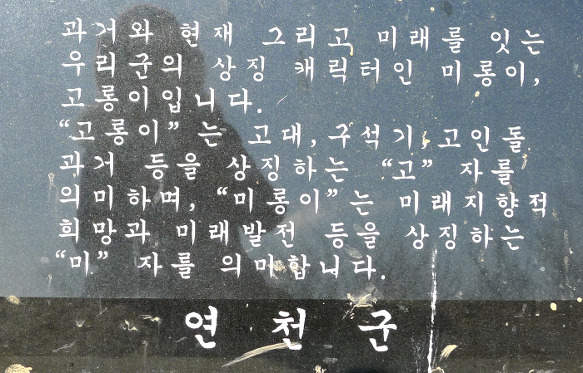 과거와 현재 그리고 미래를 잇는
우리군의 상징 캐릭터인 미롱이,
고롱이입니다.
“고롱이” 는 고대,구석기,고인돌
과거 등을 상징하는 “고” 자를
의미하며, “미롱이”는 미래지향적
희망과 미래발전 등을 상징하는
“미” 자를 의미합니다.
연천군